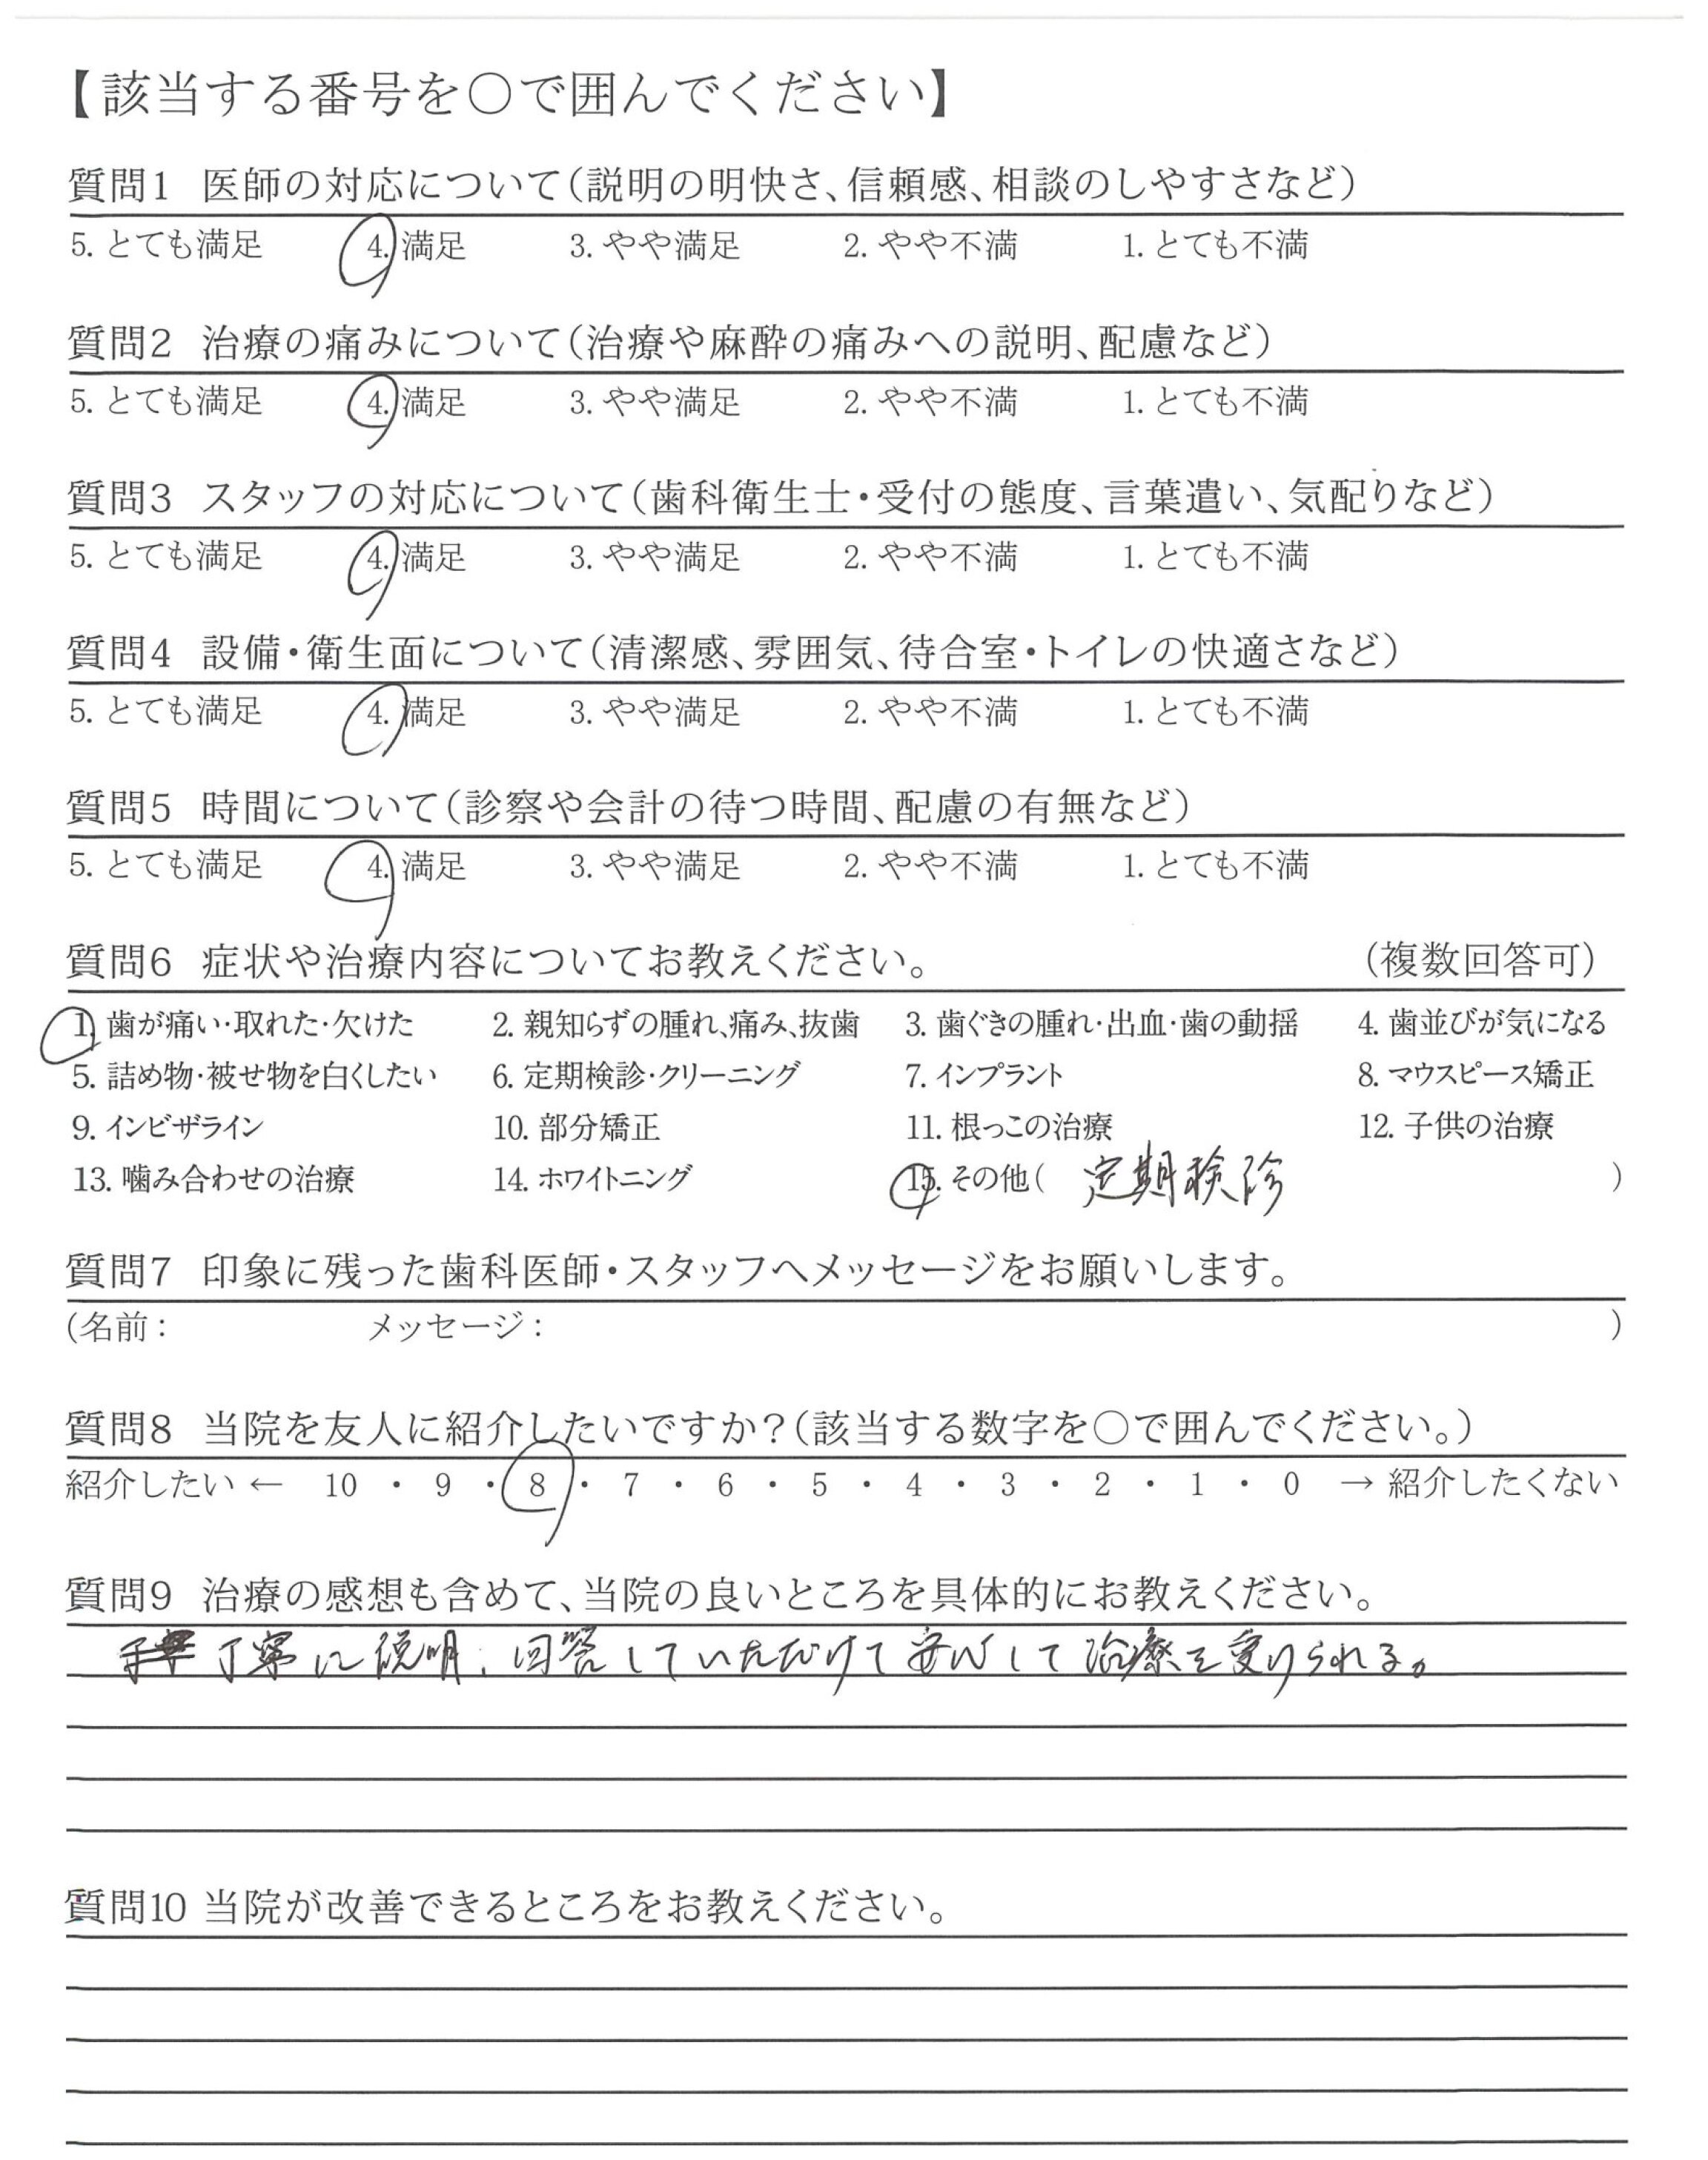 【該当する番号を○で囲んでください】
質問1 医師の対応について(説明の明快さ、信頼感、相談のしやすさなど)
5. とても満足 4. 満足 3. やや満足 2. やや不満 1. とても不満
質問2 治療の痛みについて(治療や麻酔の痛みへの説明、配慮など)
5. とても満足 4. 満足 3. やや満足 2. やや不満 1. とても不満
質問3 スタッフの対応について(歯科衛生士・受付の態度、言葉遣い、気配りなど)
5. とても満足 4. 満足 3. やや満足 2. やや不満 1. とても不満
質問4 設備・衛生面について(清潔感、雰囲気、待合室・トイレの快適さなど)
5. とても満足 4. 満足 3. やや満足 2. やや不満 1. とても不満
質問5 時間について(診察や会計の待つ時間、配慮の有無など)
5. とても満足 4. 満足 3. やや満足 2. やや不満 1. とても不満
質問6 症状や治療内容についてお教えください。 (複数回答可)
1. 歯が痛い・取れた・欠けた 2. 親知らずの腫れ、痛み、抜歯 3. 歯ぐきの腫れ・出血・歯の動揺 4. 歯並びが気になる
5. 詰め物・被せ物を白くしたい 6. 定期検診・クリーニング 7. インプラント 8. マウスピース矯正
9. インビザライン 10. 部分矯正 11. 根っこの治療 12. 子供の治療
13. 噛み合わせの治療 14. ホワイトニング 15. その他( 定期検診 )
質問7 印象に残った歯科医師・スタッフへメッセージをお願いします。
(名前: メッセージ: )
質問8 当院を友人に紹介したいですか?(該当する数字を○で囲んでください。)
紹介したい ← 10 ・ 9 ・ 8 ・ 7 ・ 6 ・ 5 ・ 4 ・ 3 ・ 2 ・ 1 ・ 0 → 紹介したくない
質問9 治療の感想も含めて、当院の良いところを具体的にお教えください。
丁寧に説明、回答していただけて安心して治療を受けられる。
質問10 当院が改善できるところをお教えください。